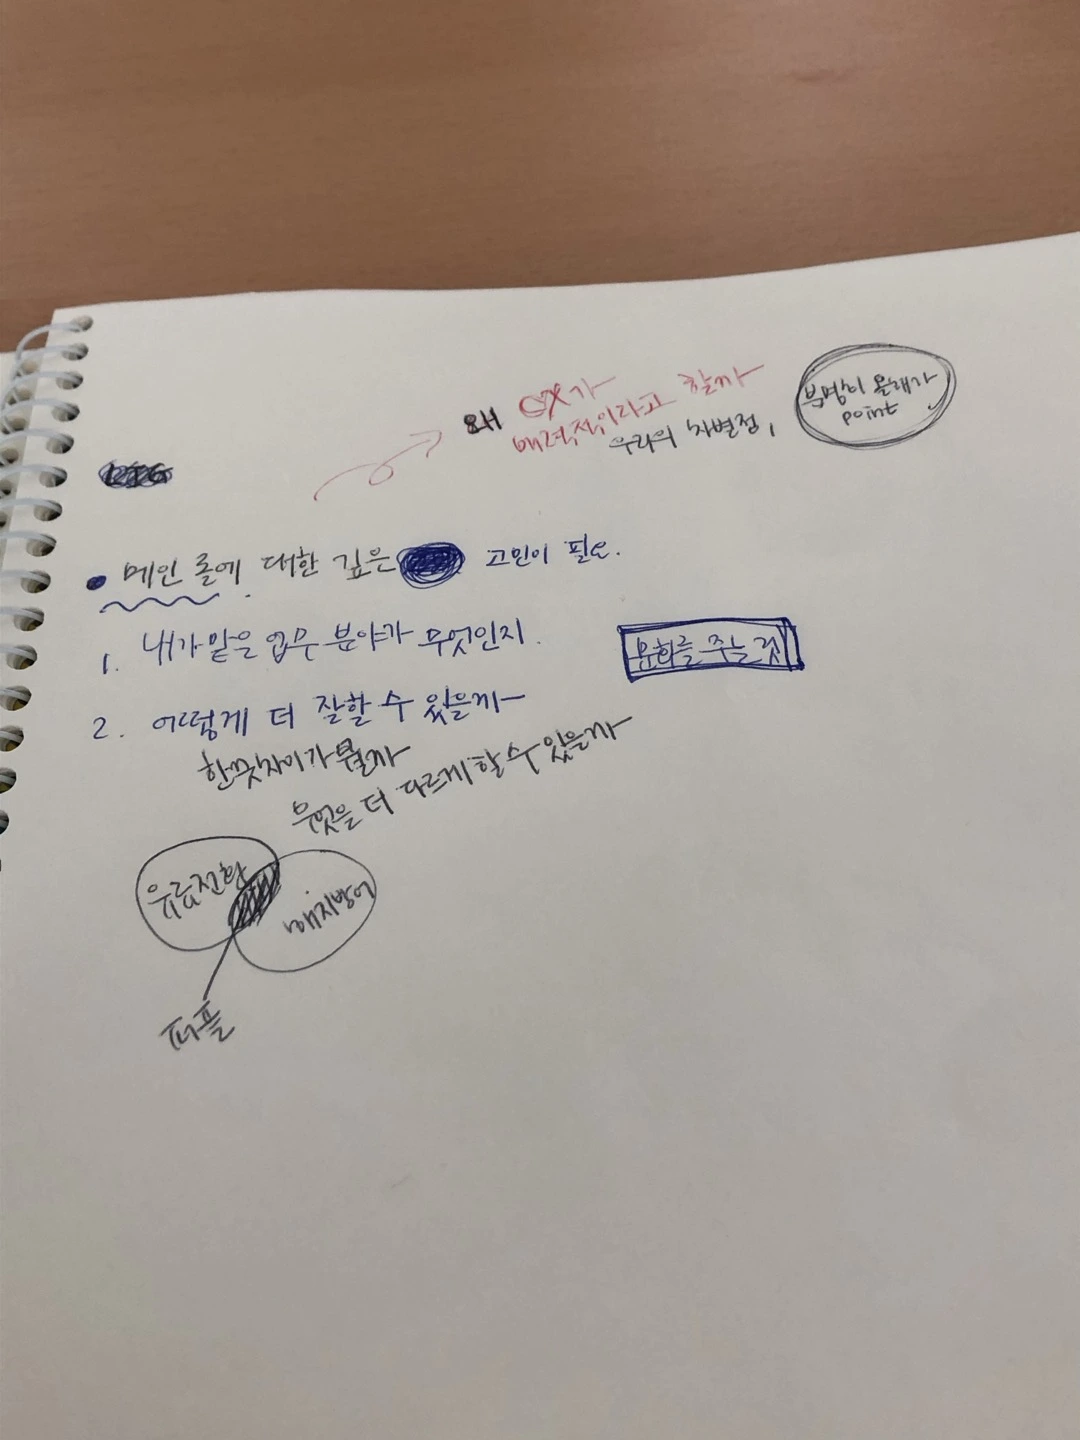 왜 CX가
매력적이라고 할까
우리의 차별점,
올해가
point
• 메인 롤에 대한 깊은 고민이 필요.
1. 내가 맡은 업무 분야가 무엇인지.
주는 것
2. 어떻게 더 잘할 수 있을까
한끗차이가 뭘까
무엇을 더 다르게 할 수 있을까
유료전환
해지방어
퍼플